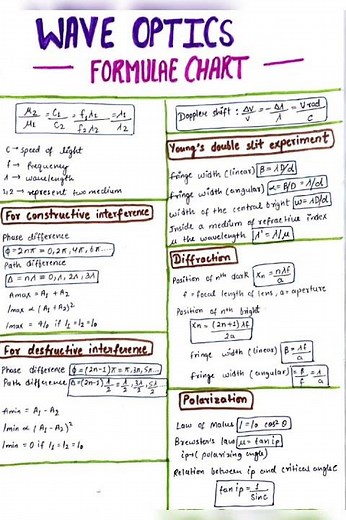 WAVE OPTICS
FORMULAE CHART
μ₂/μ₁ = C₁/C₂ = f₁λ₁/f₂λ₂ = λ₁/λ₂
C → speed of light
f → frequency
λ → wavelength
1,2 → represent two medium
For constructive interference
Phase difference
ϕ = 2nπ = 0, 2π, 4π, 6π....
Path difference
Δ = nλ = 0, λ, 2λ, 3λ
Amax = A₁ + A₂
Imax ∝ (A₁ + A₂)²
Imax = 4I₀ if I₁ = I₂ = I₀
For destructive interference
Phase difference ϕ = (2n-1)π = π, 3π, 5π...
Path difference Δ = (2n-1) λ/2 = λ/2, 3λ/2, 5λ/2...
Amin = A₁ - A₂
Imin ∝ (A₁ - A₂)²
Imin = 0 if I₁ = I₂ = I₀
Doppler shift : Δν/ν = -Δλ/λ = V rad/C
Young's double slit experiment
Fringe width (linear) β = λD/d
Fringe width (angular) α = β/D = λ/d
Width of the central bright ω = λD/d
Inside a medium of refractive index
μ the wavelength λ' = λ/μ
Diffraction
Position of nth dark Xn = nλf/a
f = focal length of lens, a = aperture
Position of nth bright
Xn = (2n+1)λf/2a
fringe width (linear) β = λf/a
fringe width (angular) = β/f = λ/a
Polarization
Law of Malus I = I₀ cos²θ
Brewster's law μ = tan ip
ip → (polarising angle)
Relation between ip and critical angle C
tan ip = 1/sinc